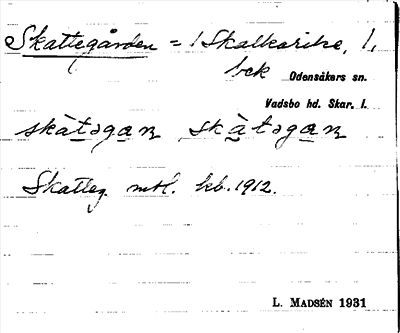 Skattegården = 1 Skalkarike, 1,
bek Odensåkers sn.
Vadsbo hd. Skar. l.
skàtəgaɳ skàtəgaɳ
Skatteg. mtl. kb. 1912.
L. MADSÉN 1931